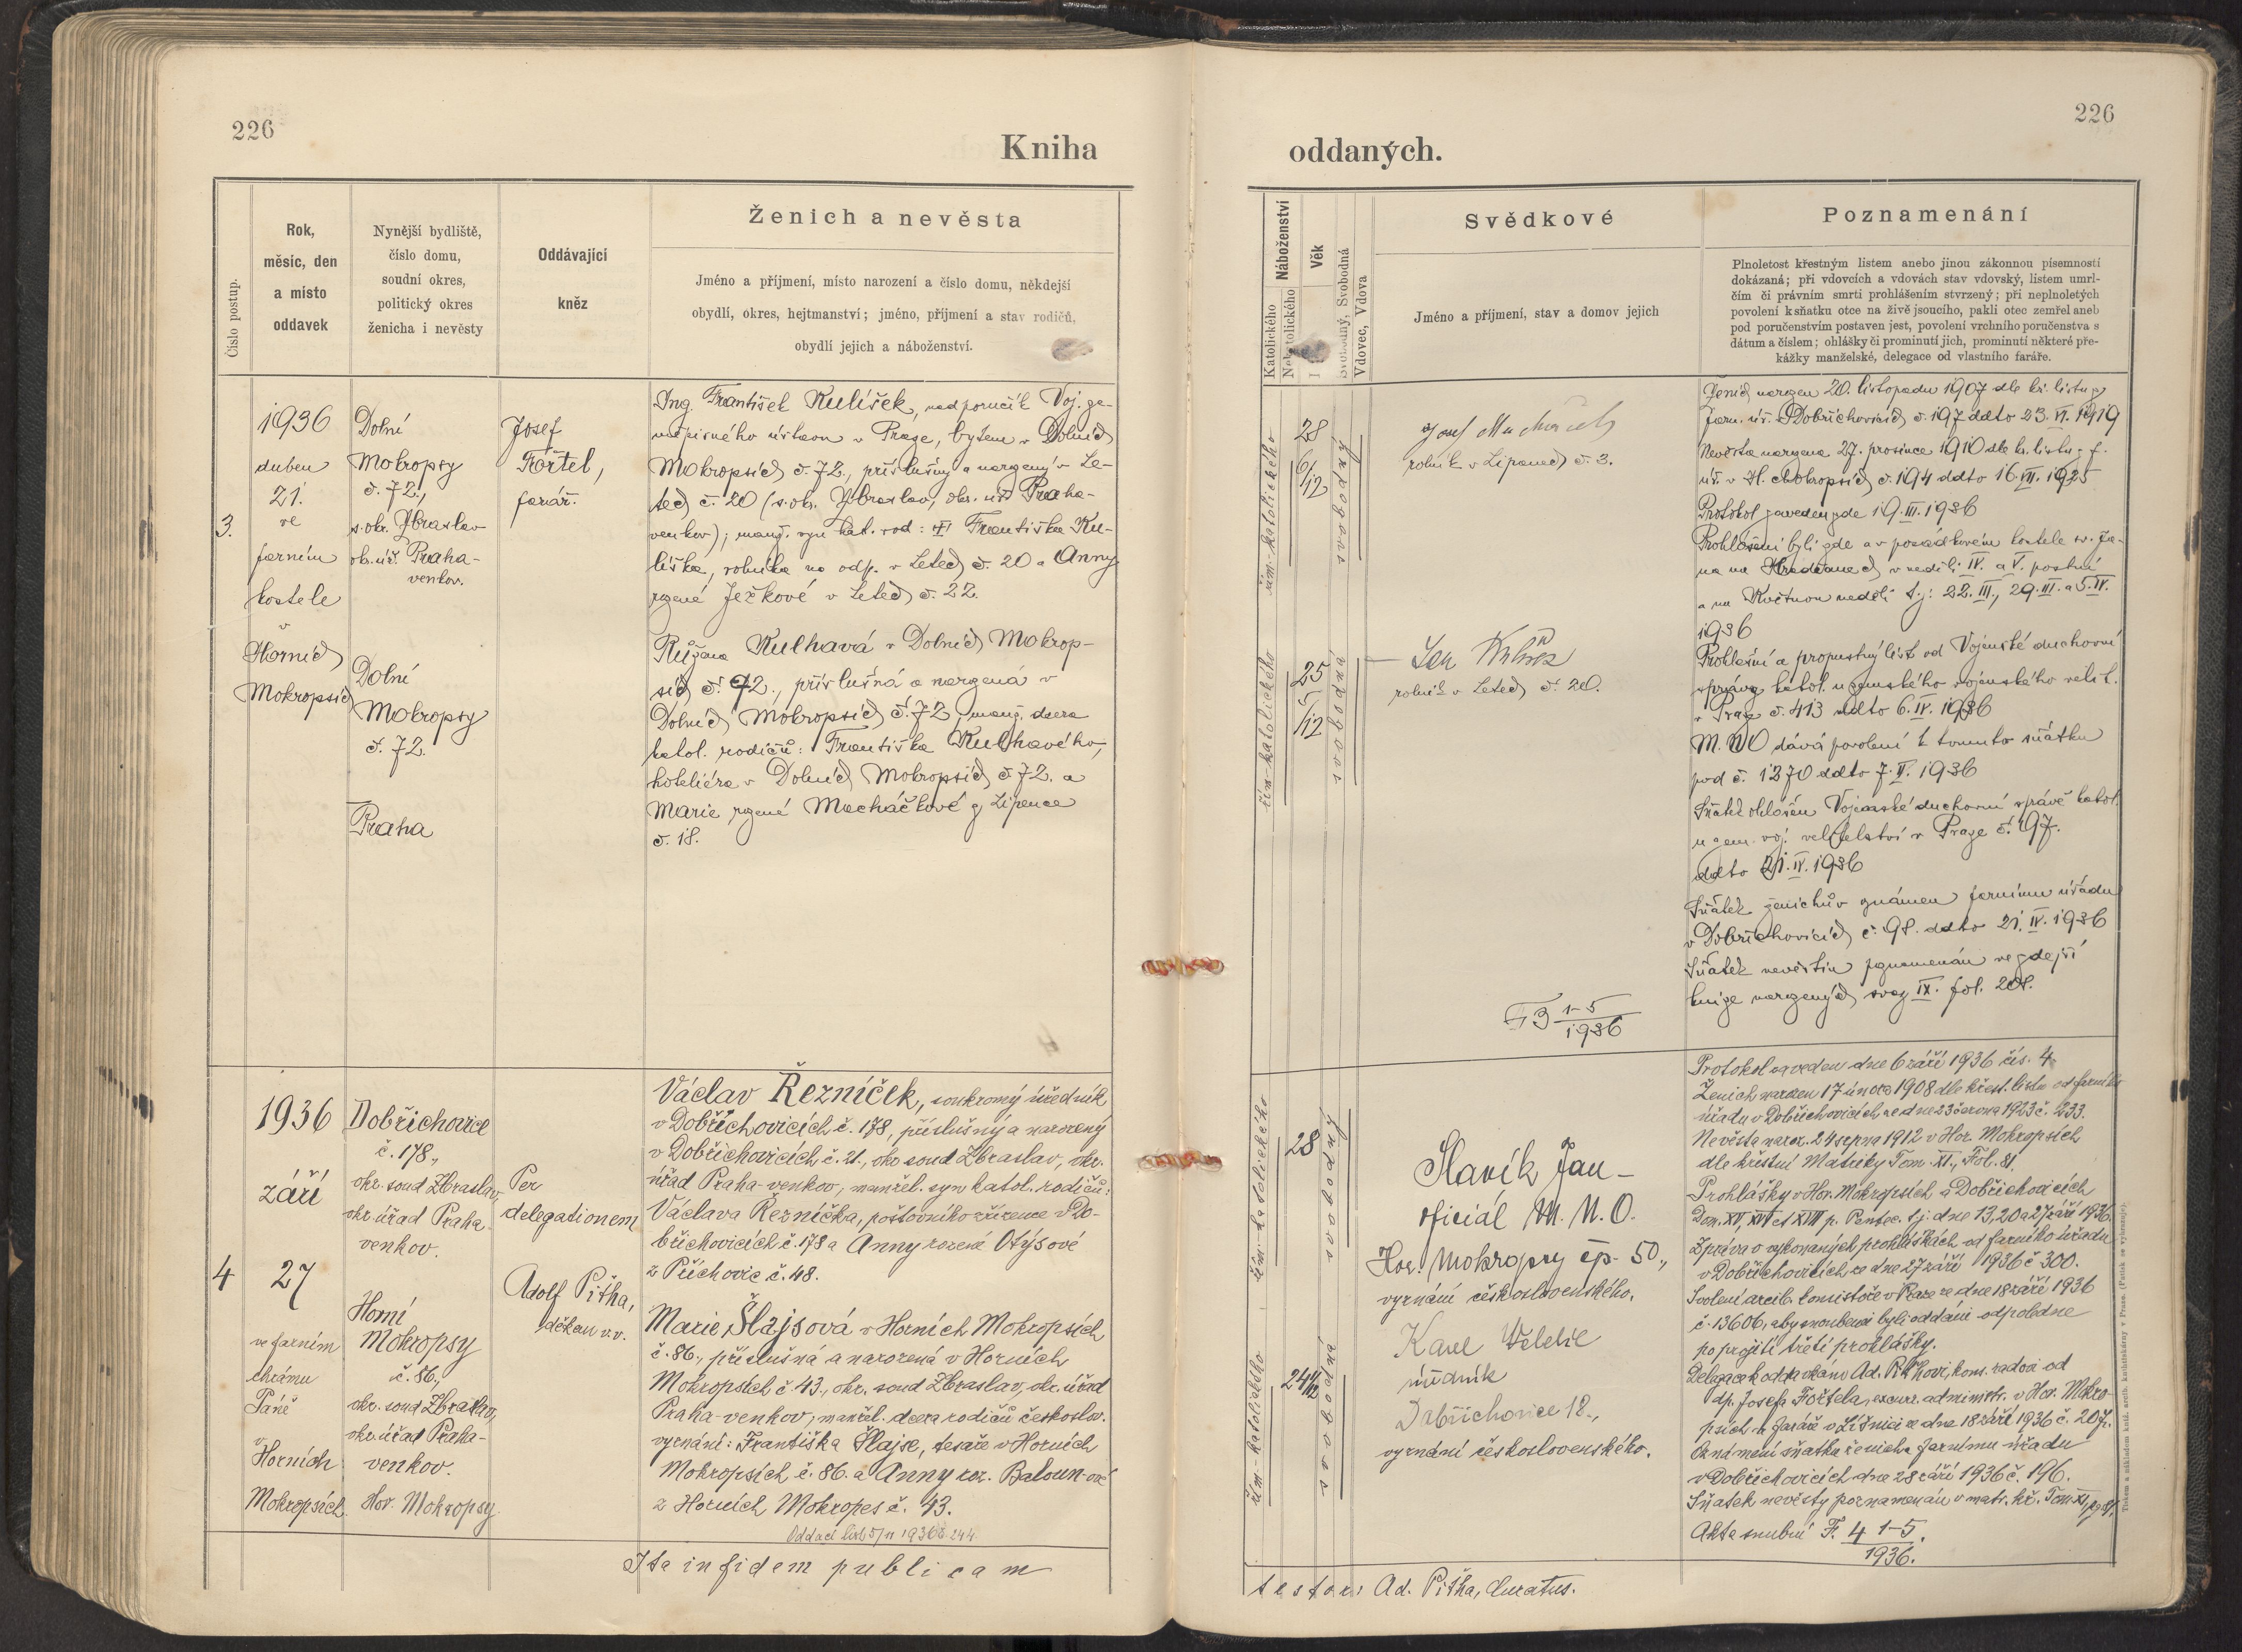 226
Kniha
Číslo postup.
Rok,
měsíc, den
a místo
oddavek
Nynější bydliště,
číslo domu,
soudní okres,
politický okres
ženicha i nevěsty
Oddávající
kněz
Ženich a nevěsta
Jméno a příjmení, místo narození a číslo domu, někdejší
obydlí, okres, hejtmanství; jméno, příjmení a stav rodičů,
obydlí jejich a náboženství.
3.
1936
duben
21.
ve
farním
kostele
v
Horních
Mokropsích
Dolní
Mokropsy
č. 72.,
s. okr. Zbraslav
ok. úř. Praha-
venkov.
Dolní
Mokropsy
č. 72.
Praha
Josef
Fořtel,
farář.
Ing. František Kulíšek, nadporučík Voj. ze-
měpisného ústavu v Praze, bytem v Dolních
Mokropsích č. 72., příslušný a narozený v Le-
tech č. 20 (s. ok. Zbraslav, okr. úř. Praha-
venkov); manž. syn kat. rod: František Ku-
líška, rolníka na odp. v Letech č. 20 a Anny
rozené Ježkové v Letech č. 22.
Růžena Kulhavá v Dolních Mokrop-
sích č. 72., příslušná a narozená v
Dolních Mokropsích č. 72, manž. dcera
katol. rodičů: Františka Kulhavého,
hoteliéra v Dolních Mokropsích č. 72. a
Marie rozené Macháčkové z Lipence
č. 18.
4
1936
září
27
ve farním
chrámu
Páně
v
Horních
Mokropsích.
Dobřichovice
č. 178.,
okr. soud Zbraslav,
okr. úřad Praha-
venkov.
Horní
Mokropsy
č. 86.,
okr. soud Zbraslav,
okr. úřad Praha-
venkov.
Hor. Mokropsy
Per
delegationem
Adolf Pitha,
děkan v. v.
Václav Řezníček, soukromý úředník
v Dobřichovicích č. 178, příslušný a narozený
v Dobřichovicích č. 21., okr. soud Zbraslav, okr.
úřad Praha-venkov, manžel. syn katol. rodičů:
Václava Řezníčka, poštovního zřízence v Do-
břichovicích č. 178 a Anny rozené Otýsové
z Příchovic č. 48.
Marie Šlajsová v Horních Mokropsích
č. 86., příslušná a narozená v Horních
Mokropsích č 43., okr. soud Zbraslav, okr. úřad
Praha-venkov, manžel. dcera rodičů českoslov.
vyznání: Františka Šlajse, tesaře v Horních
Mokropsích č. 86. a Anny roz. Baloun-ové
z Horních Mokropes č. 43.
Oddací list 5/11 1936 č. 244.
Ita in fidem publicam
226
oddaných.
Náboženství
Katolického
Nekatolického
Věk
Svobodný, Svobodná
Vdovec, Vdova
Svědkové
Jméno a příjmení, stav a domov jejich
Poznamenání
Plnoletost křestným listem anebo jinou zákonnou písemností
dokázaná; při vdovcích a vdovách stav vdovský, listem umrl-
čím či právním smrti prohlášením stvrzený; při neplnoletých
povolení k sňatku otce na živě jsoucího, pakli otec zemřel aneb
pod poručenstvím postaven jest, povolení vrchního poručenstva s
dátum a číslem; ohlášky či prominutí jich, prominutí některé pře-
kážky manželské, delegace od vlastního faráře.
řím. katolického
28
6/12
svobodný
rolník v Lipanech č. 3.
řím-katolického
25
5/12
svobodná
Jan
rolník v Letech č. 20.
F 3 1-5
1936
Ženich narozen 20. listopadu 1907 dle kř. listu z
farn. úř. v Dobřichovicích č. 197 ddto 23. VI. 1919
Nevěsta narozena 27. prosince 1910 dle kř. listu z f.
úř. v H. Mokropsích č. 194 ddto 16. VII. 1925
Protokol zaveden zde 19. III. 1936
Prohlášeni byli zde a v posádkovém kostele sv. Ja-
na na Hradčanech v neděli IV. a V. postní
a na Květnou neděli t. j: 22. III., 29. III. a 5. IV.
1936
Prohlášní a propustný list od Vojenské duchovní
správy katol. u zemského vojenského velit.
v Praze č. 413 ddto 6. IV. 1936
M. N. O dává povolení k tomuto sňatku
pod č. 1270 ddto 7. II. 1936
Sňatek ohlášen Vojenské duchovní správě katol.
u zem. voj. velitelství v Praze č. 97.
ddto 21. IV. 1936
Sňatek ženichův známen farnímu úřadu
v Dobřichovicích č. 98. ddto 21. IV. 1936
Sňatek nevěstin poznamenán ve zdejší
knize narozených svaz. IX. fol. 208.
řím-katolického
28
svobodný
Slavík Jan –
oficiál M. N. O.
Hor. Mokropsy čp. 50.,
vyznání československého.
řím-katolického
24 1/12
svobodná
Karel
úředník
Dobřichovice 18.,
vyznání československého.
Protokol zaveden dne 6 září 1936 čís. 4.
Ženich narozen 17 února 1908 dle křest. listu od farního
úřadu v Dobřichovicích ze dne 23 června 1923 č. 233.
Nevěsta naroz. 24 srpna 1912 v Hor. Mokropsích
dle křestní Matriky Tom. XI., Fol. 81.
Prohlášky v Hor. Mokropsích a Dobřichovicích
Dom. XV, XVI et XVII p. Pentec. t. j. dne 13, 20 a 27 září 1936.
Zpráva o vykonaných prohláškách od farního úřadu
v Dobřichovicích ze dne 27 září 1936 č 300.
Svolení arcib. konsistoře v Praze ze dne 18 září 1936
č. 13606, aby snoubenci byli oddáni odpoledne
po projití třetí prohlášky.
Delegace k oddavkám Ad. Pithovi, kons. radovi od
dp. Josefa Fořtela, excurr. administr. v Hor. Mokro-
psích a faráře v Líšnici ze dne 18 září 1936 č. 207.
Oznámení sňatku ženicha farnímu úřadu
v Dobřichovicích dne 28 září 1936 č. 196.
Sňatek nevěsty poznamenán v matr. kř. Tom XI, pg 81.
Akta snubní F. 4 1-5.
1936.
testor: Ad. Pitha, Curatus.